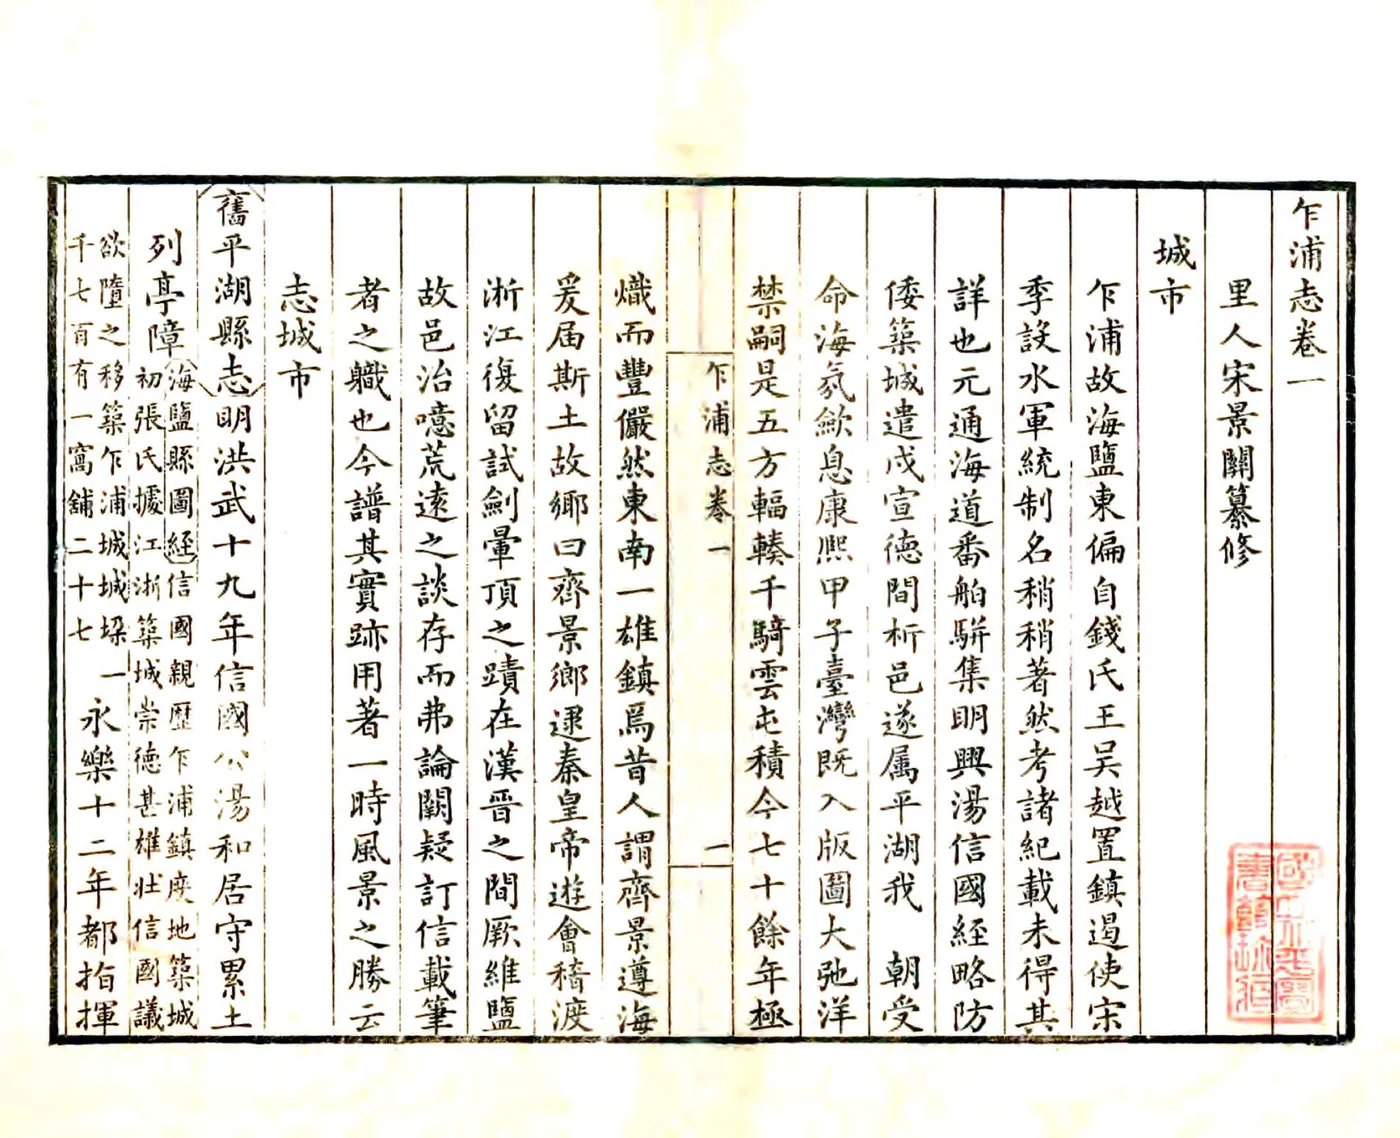 乍浦志卷一
里人宋景關纂修
城市
乍浦故海鹽東偏自錢氏王吳越置鎮遏使宋
季設水軍統制名稍稍著然考諸紀載未得其
詳也元通海道番舶駢集明興湯信國經略防
倭築城遣戍宣德間析邑遂属平湖我 朝受
命海氛歛息康熙甲子臺灣既入版圖大弛洋
禁嗣是五方輻輳千騎雲屯積今七十餘年極
乍浦志卷一 一
熾而豐儼然東南一雄鎮焉昔人謂齊景遵海
爰届斯土故鄉曰齊景鄉逮秦皇帝遊會稽渡
淅江復留試劍暈頂之蹟在漢晉之間厥維鹽
故邑治噫荒遠之談存而弗論闕疑訂信載筆
者之職也今譜其實跡用著一時風景之勝云
志城市
舊平湖縣志明洪武十九年信國公湯和居守累土
列亭障
海鹽縣圖經信國親歴乍浦鎮度地築城
初張氏據江浙築城崇德甚雄壯信國議
欲隳之移築乍浦城城垜一
千七百有一窩舖二十七
永樂十二年都指揮